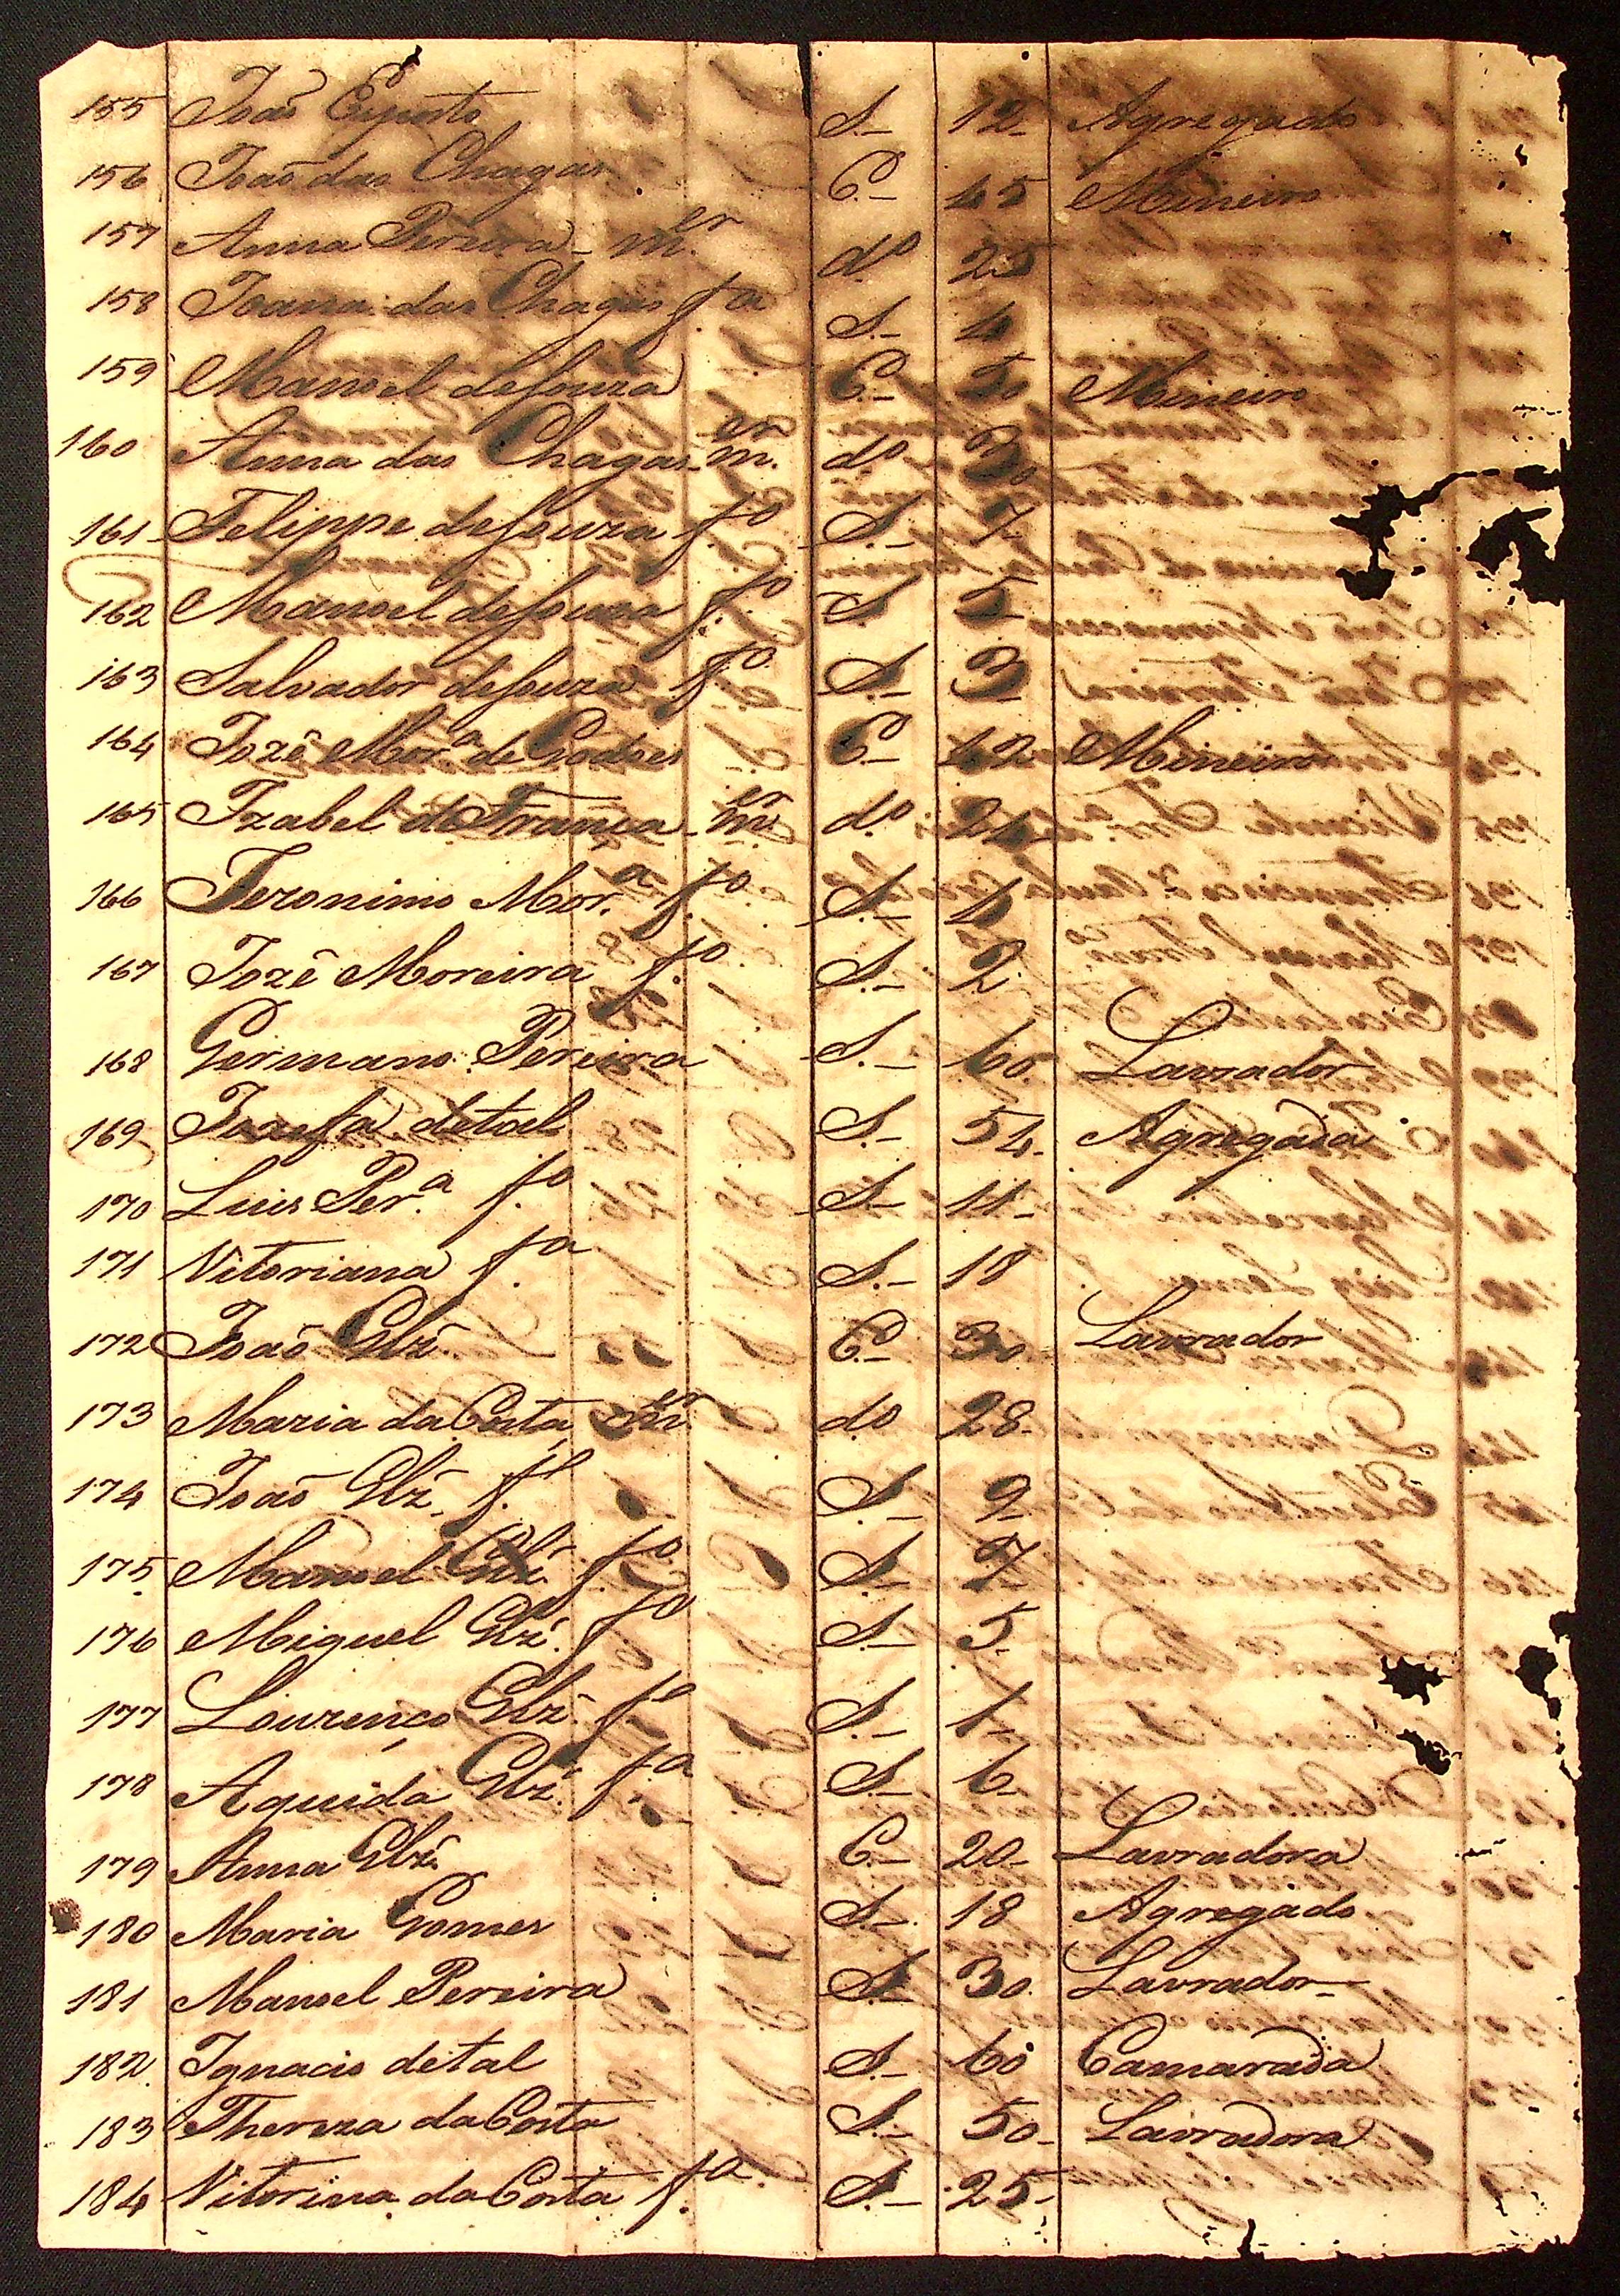 155 João Exposto S.– 12– Agregado
156 João das Chagas C.– 45 Mineiro
157 Anna Pereira – m.er d.o 25
158 Joana das Chagas f.a S.– 4
159 Manoel de Souza C.– 50 Mineiro
160 Anna das Chagas – m.er d.o 30
161 Felippe de Souza f.o S.– 7
162 Manoel de Souza f.o S 5
163 Salvador de Souza f.o S.– 3
164 Jozê Mor.a de Godoes C– 42 Mineiro
165 Izabel de França – m.er d.o 24
166 Jeronimo Mor.a f.o S.– 4
167 Jozê Moreira f.o S.– 2
168 Germano Pereira S.– 60. Lavrador
169 Jozefa de tal S.– 54. Agregada
170 Luis Per.a f.o S.– 11–
171 Vitoriana f.a S.– 18
172 João Glz̃. C.– 30 Lavrador
173 Maria da Costa m.er d.o 28–
174 João Glz̃. f.o S.– 9–
175 Manoel Glz̃. f.o S– 7
176 Miguel Glz̃. f.o S– 5–
177 Lourenço Glz̃. f.o S.– 1–
178 Aguida Glz̃. f.a S.– 6–
179 Anna Glz̃. C.– 20– Lavradora
180 Maria Gomes S.– 18 Agregado
181 Manoel Pereira S– 30. Lavrador–
182. Ignacio de tal S.– 60 Camarada
183 Thereza da Costa S.– 50– Lavradora
184 Vitorina da Costa f.a S.– 25–